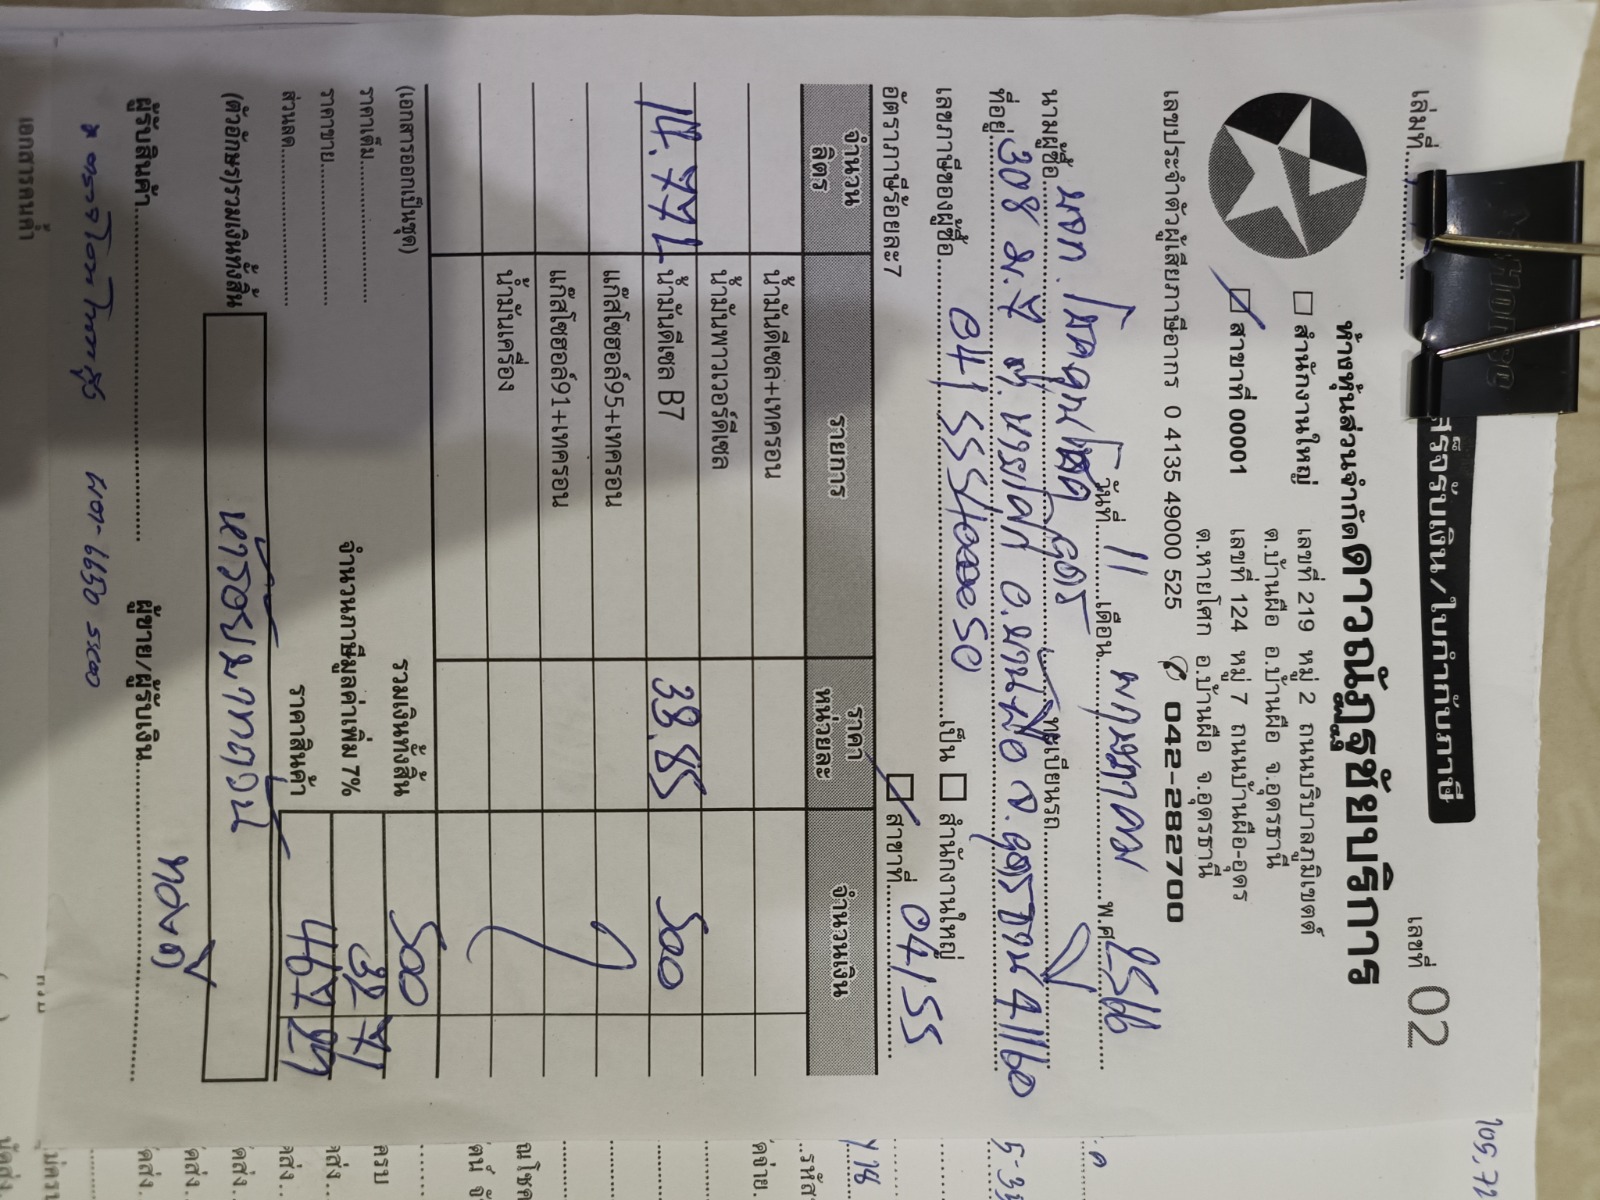 เล่มที่
เลขที่ 02
สร็จรับเงิน/ใบกำกับภาษี
ห้างหุ้นส่วนจำกัดดาวณัฏฐชัยบริการ
สำนักงานใหญ่ เลขที่ 219 หมู่ 2 ถนนบริบาลภูมิเขตต์
ต.บ้านผือ อ.บ้านผือ จ.อุดรธานี
สาขาที่ 00001 เลขที่ 124 หมู่ 7 ถนนบ้านผือ-อุดร
ต.หายโศก อ.บ้านผือ จ.อุดรธานี
เลขประจำตัวผู้เสียภาษีอากร 0 4135 49000 525 042-282700
วันที่ 11 เดือน พฤษภาคม พ.ศ. 2566
นามผู้ซื้อ หจก. โชคคูณโชค อุดร ทะเบียนรถ
ที่อยู่ 308 ม.7 ต.หายโศก อ.บ้านผือ จ.อุดรธานี 41160
เลขภาษีของผู้ซื้อ เป็น สำนักงานใหญ่
อัตราภาษีร้อยละ7 สาขาที่ 04155
จำนวน ลิตร รายการ ราคา หน่วยละ จำนวนเงิน
น้ำมันดีเซล+เทครอน
น้ำมันพาวเวอร์ดีเซล
14.77 L น้ำมันดีเซล B7 33.85 500
แก๊สโซฮอล์95+เทครอน
แก๊สโซฮอล์91+เทครอน
น้ำมันเครื่อง
(เอกสารออกเป็นชุด) รวมเงินทั้งสิ้น 500
ราคาเต็ม จำนวนภาษีมูลค่าเพิ่ม 7% 32 71
ราคาขาย ราคาสินค้า 467 29
ส่วนลด
(ตัวอักษร)รวมเงินทั้งสิ้น ห้าร้อยบาทถ้วน
ผู้รับสินค้า ผู้ขาย/ผู้รับเงิน ทองดี